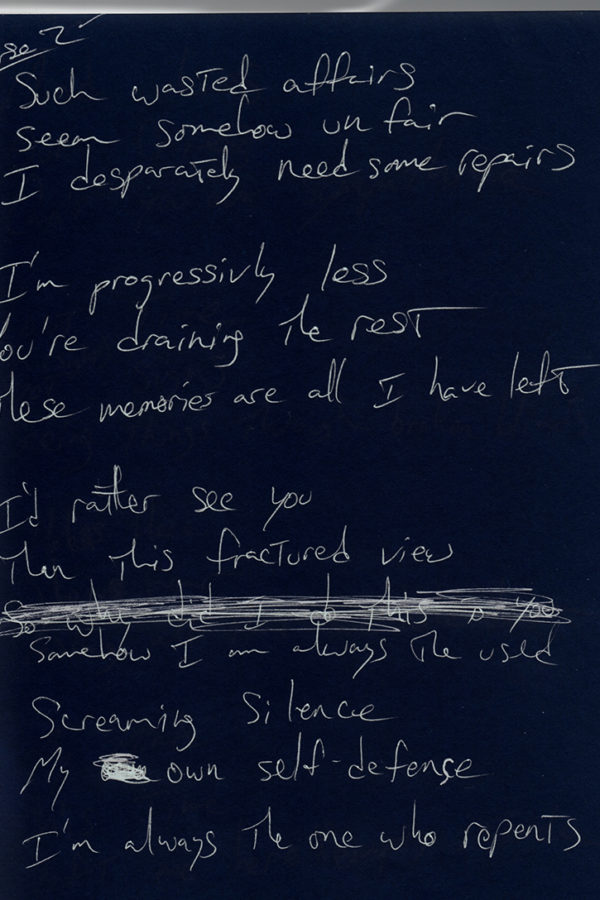 rse 2
Such wasted affairs
seem somehow unfair
I desparately need some repairs
I'm progressivly less
ou're draining the rest
these memories are all I have left
I'd rather see you
Than this fractured view
So why did I do this to you
Somehow I am always the used
Screaming Silence
My own self-defense
I'm always the one who repents